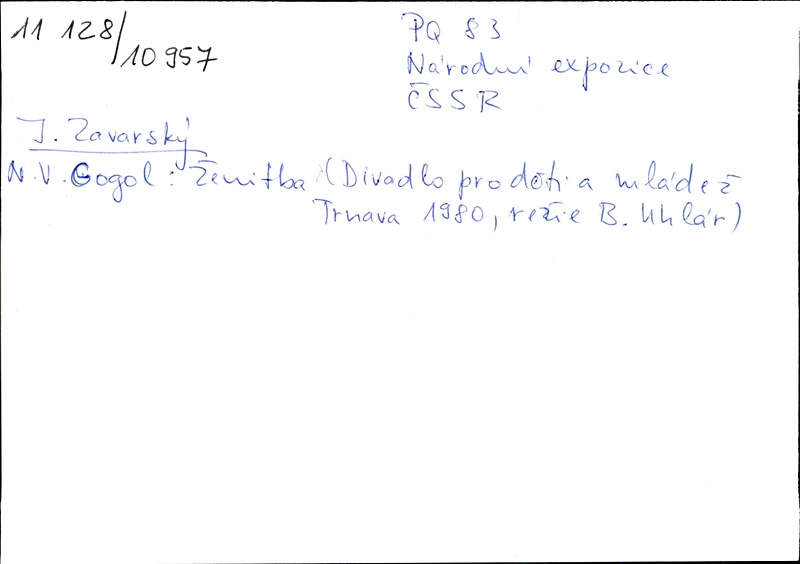 11 128/10 957
PQ 83
Národní expozice
ČSSR
J. Zavarský
N. V. Gogol: Ženitba (Divadlo pro děti a mládež
Trnava 1980, režie B. Uhlár)